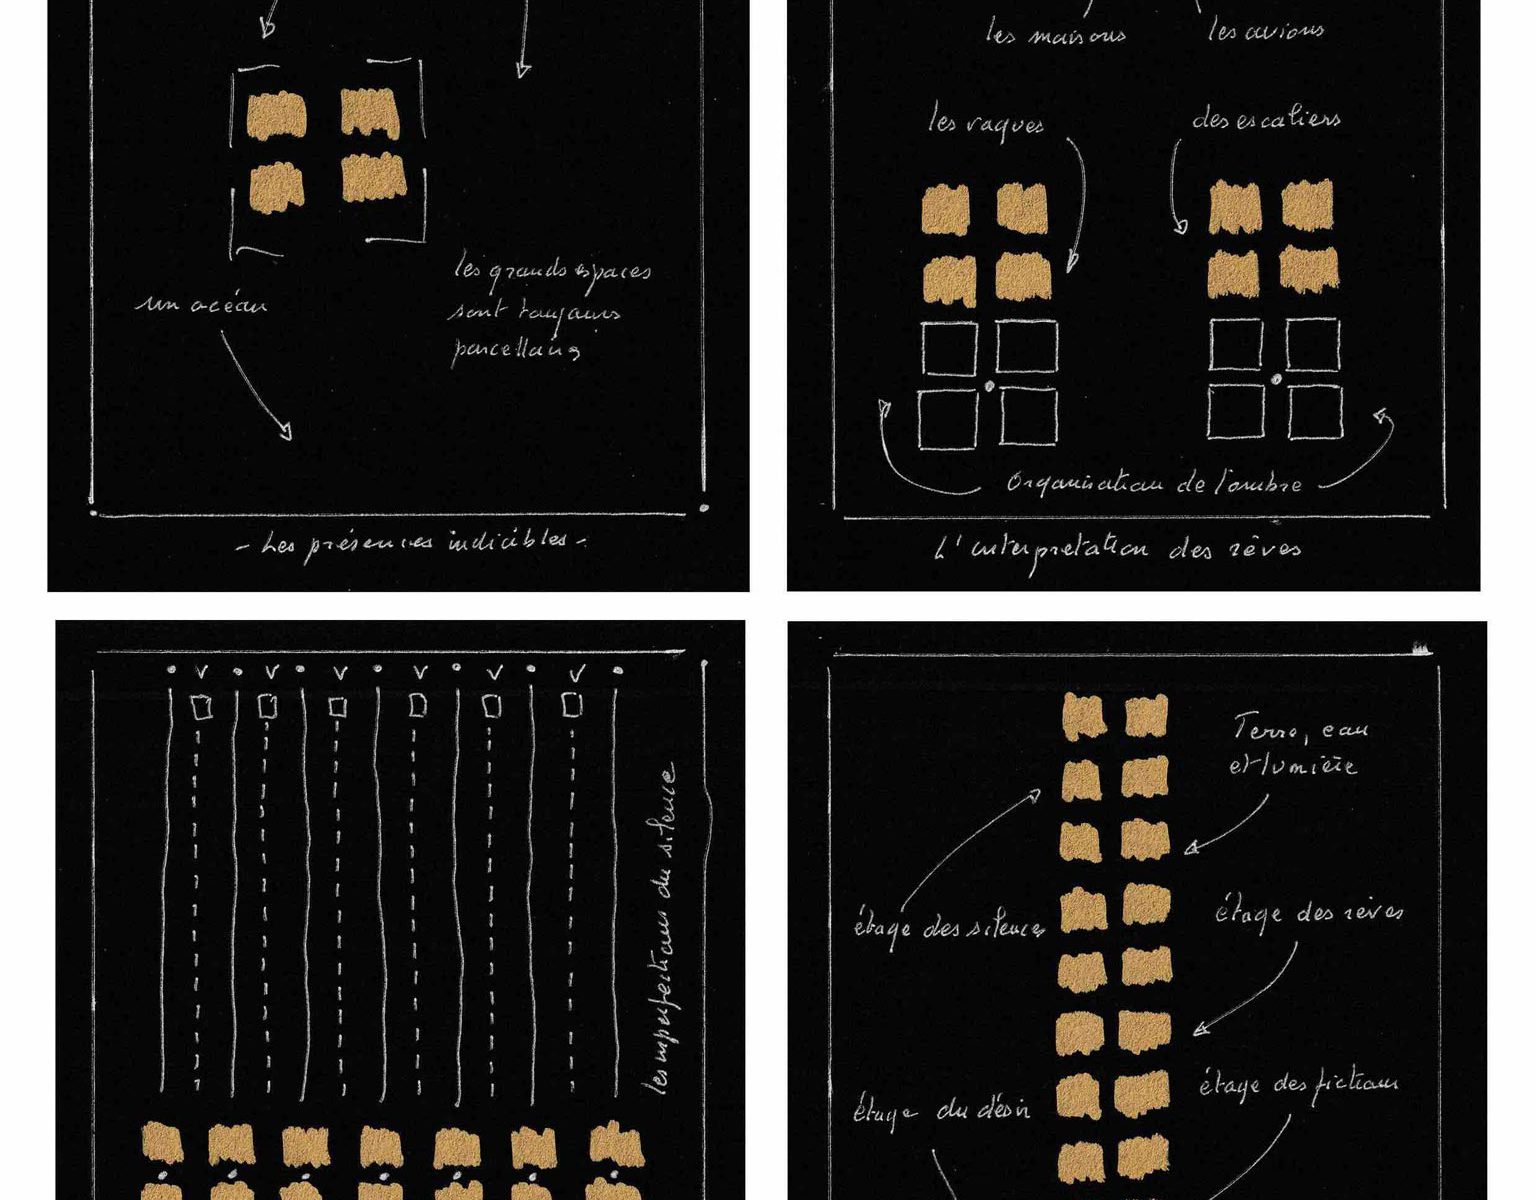 un océan
les grands espaces
sont toujours
parcellaires
- Les présences indicibles -
les maisons
les avions
les vagues
des escaliers
Organisation de l'ombre
L'interpretation des rêves
les imperfections du silence
Terre, eau
et lumière
étage des silences
étage des rêves
étage des fictions
étage du désir